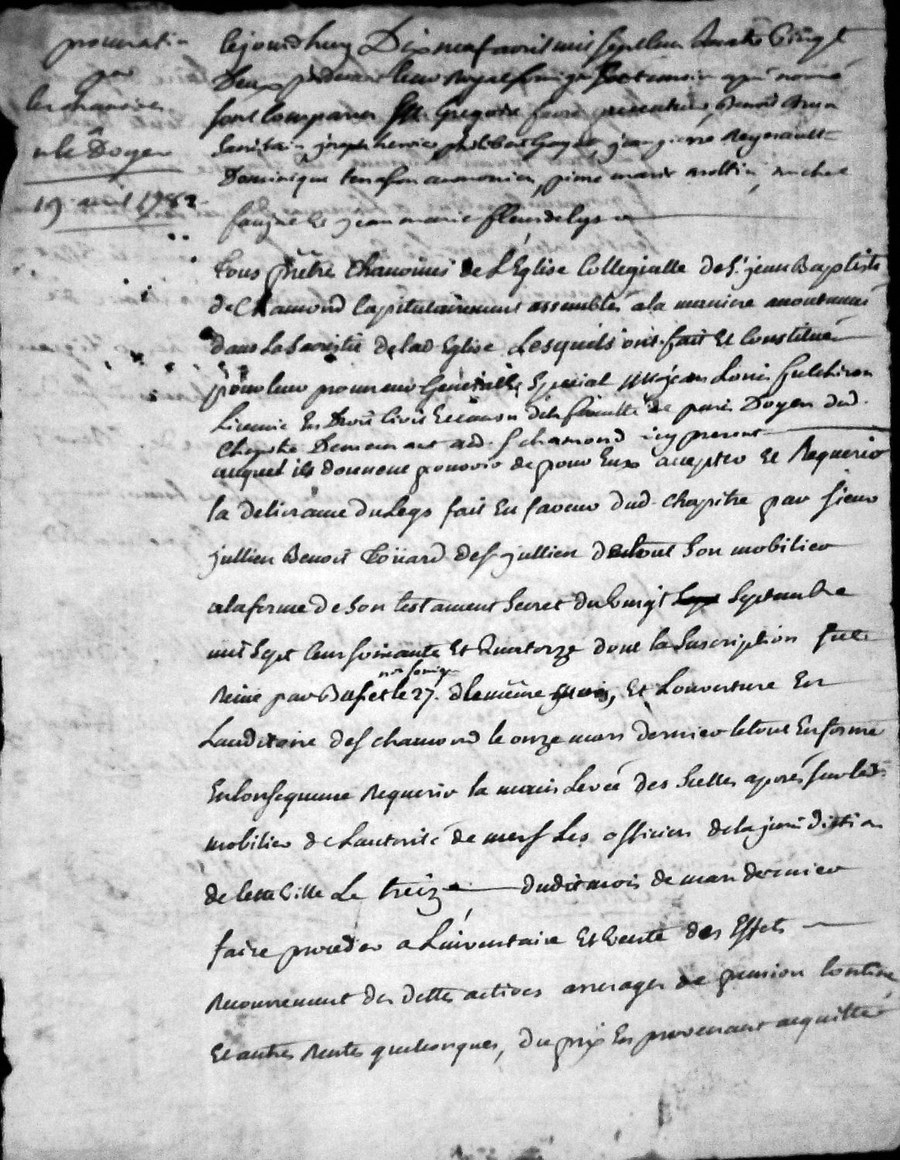 procurati
par
les chanoines
a le Doyen
19 avril 1782
Cejourdhuy Dixneuf avril mil sept cent quatre vingt
Deux pardevant le no.re Royal soussigné et temoins apres només
sont Comparus Grégoire faure precenteur, Benoit
Sacristain joseph henri philibert jean pierre
Dominique aumonier, pierre marie michel
jean marie fleurdelys
Tous prêtre Chanoines de L'Eglise Collegialle de St. jean Baptiste
de Chamond Capitulairement assemblés a la maniere accoutumée
dans La Sacristie de lad Eglise Lesquels ont fait et Constitué
pour leur procureur General & Special Mre jean Louis
Licencié En Droit Civil & Canon de la faculté de paris Doyen dud.
Chapitre Demeurant aud. St chamond icy present
auquel ils donnent pouvoir de pour Eux accepter Et Requerir
la délivrance du Legs fait En faveur dud. Chapitre par sieur
jullien Benoit de St jullien de tout Son mobilier
a la forme de Son testament Secret du vingt Septembre
mil Sept Cent Soixante Et Quatorze dont la Suscription fut
Reçüe par le 27. du même mois, Et L'ouverture En
L'auditoire de St chamond le onze mars dernier le tout En forme
En Consequence Requerir la main Levée des Scellés aposés Sur led.
mobilier de L'autorité de mess. Les officiers de la jurisdiction
de cette Ville Le treize dudit mois de mars dernier
faire proceder a L'inventaire Et Vente des Effets
Recouvrement des dettes actives arrerages de pension
Et autres Rentes quelconques, du prix En provenant acquitter